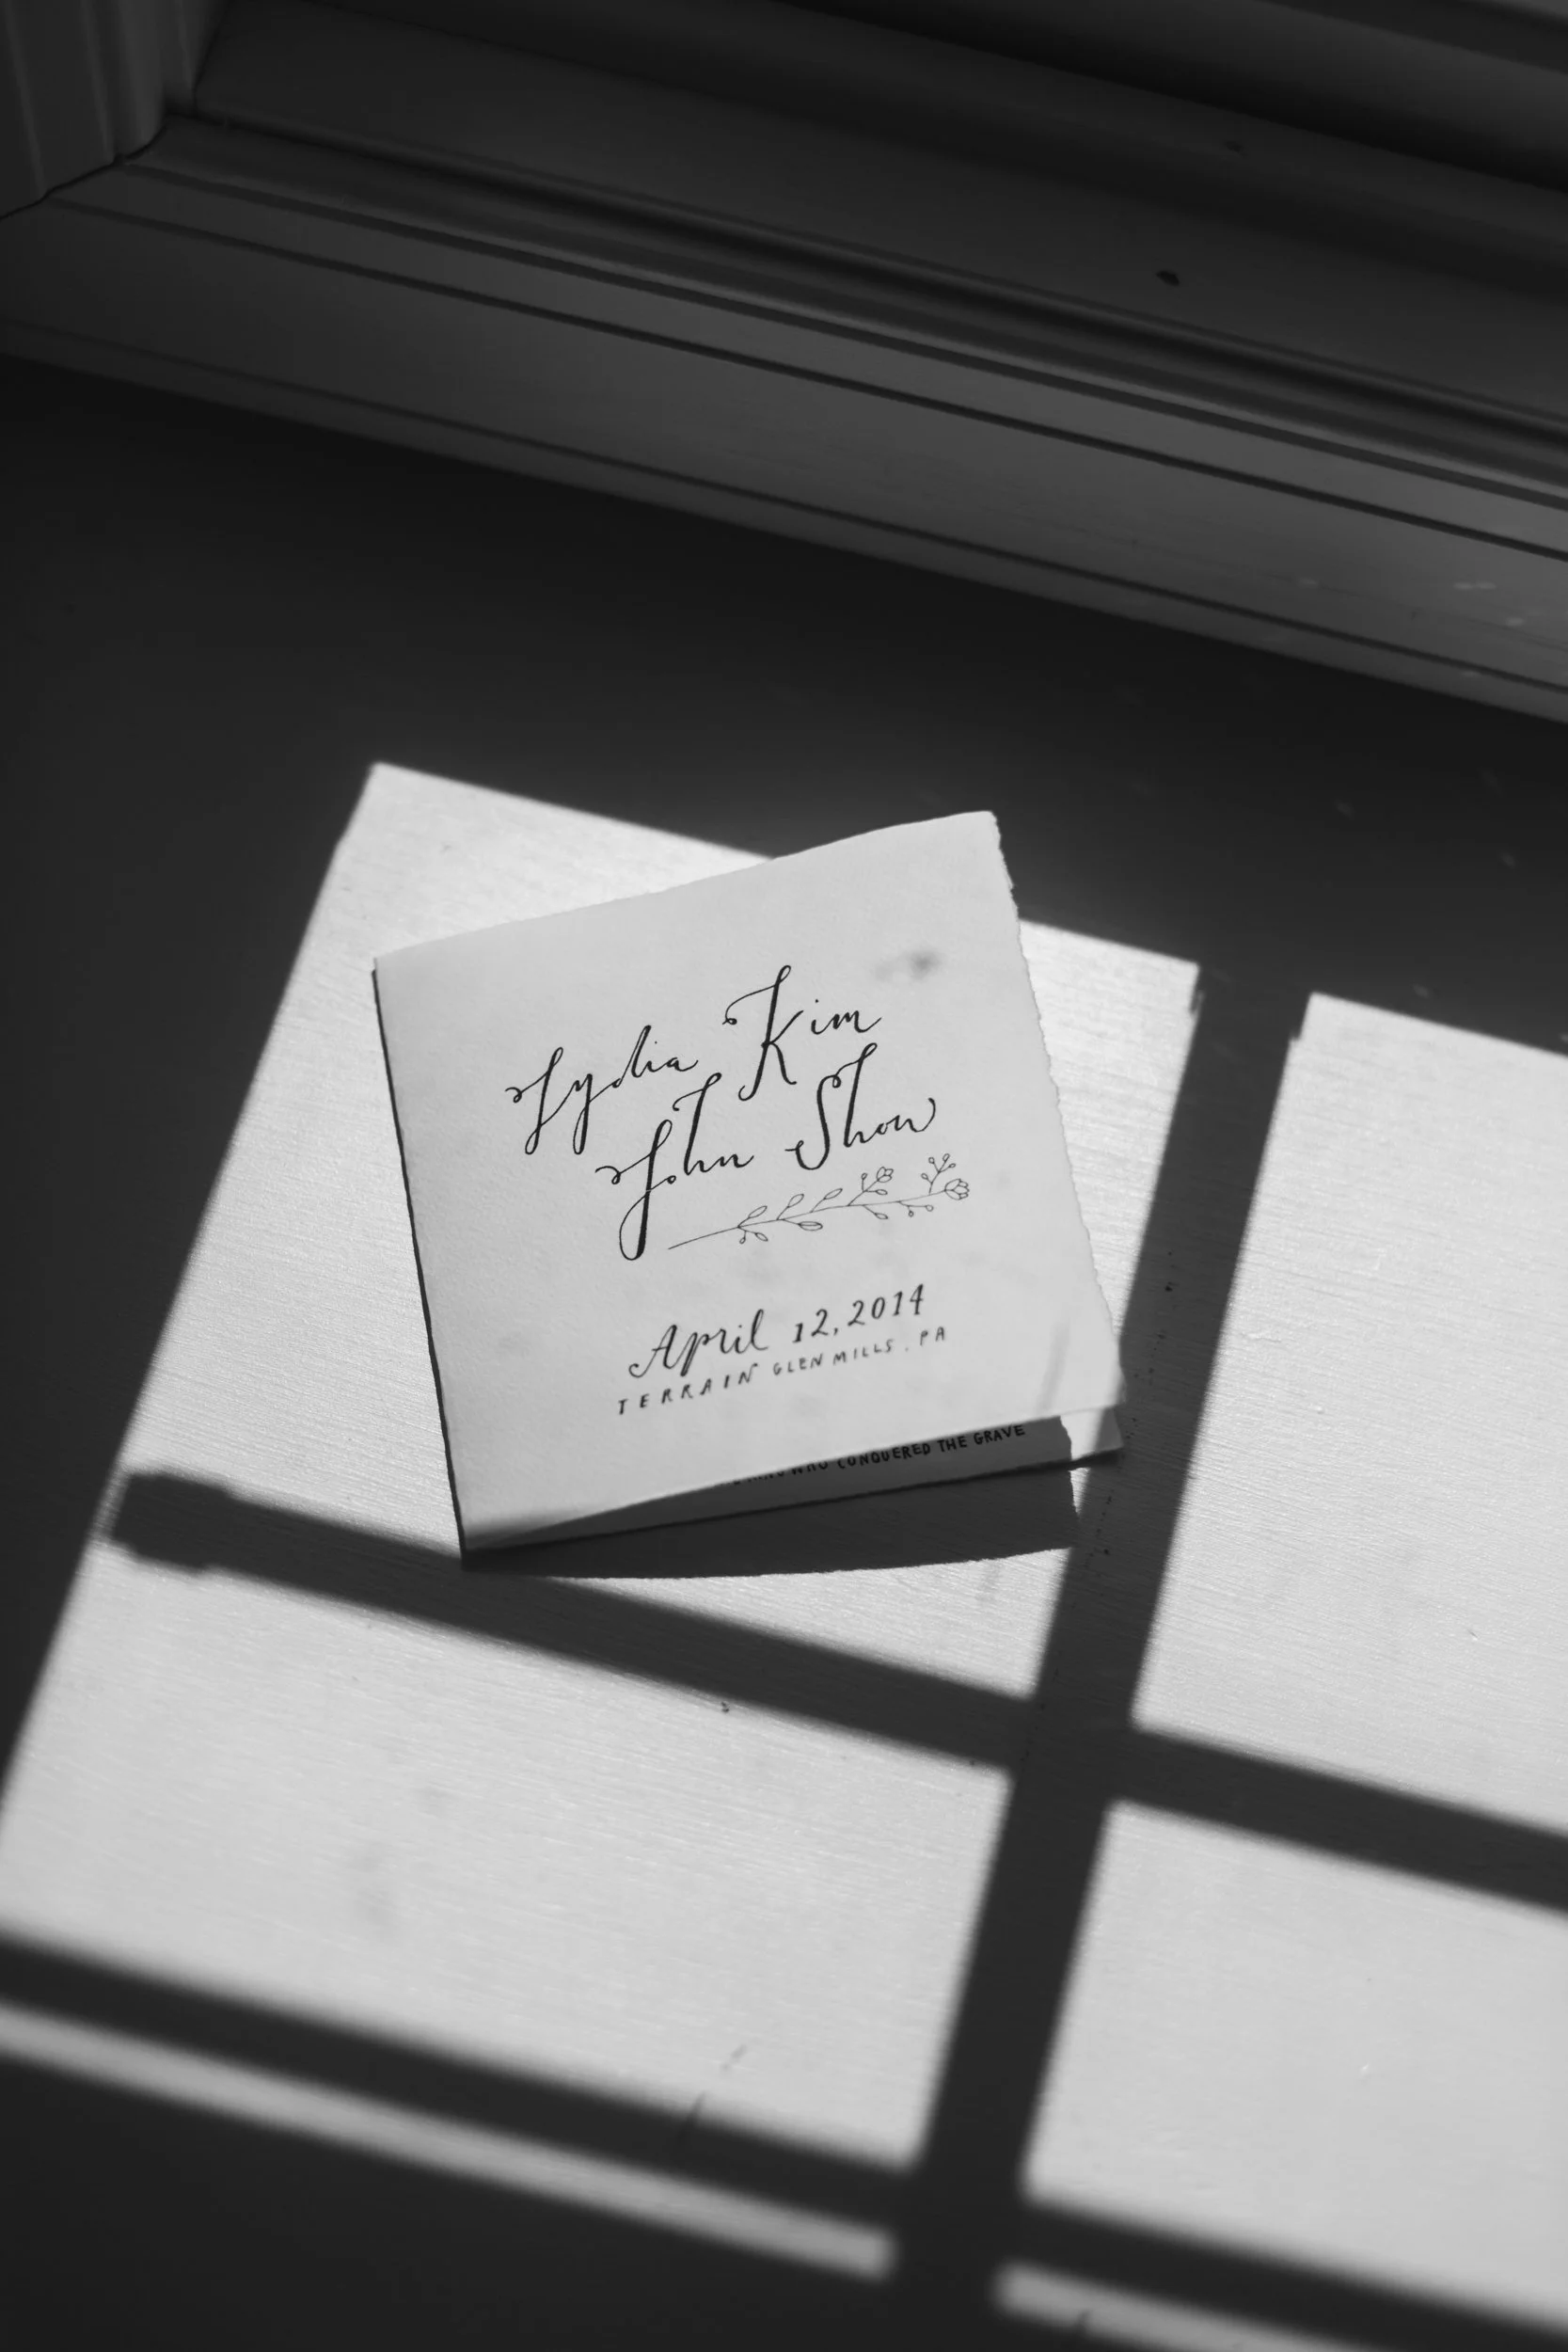 Lydia Kim
John Shon
April 12, 2014
TERRAIN GLEN MILLS, PA
WHO CONQUERED THE GRAVE